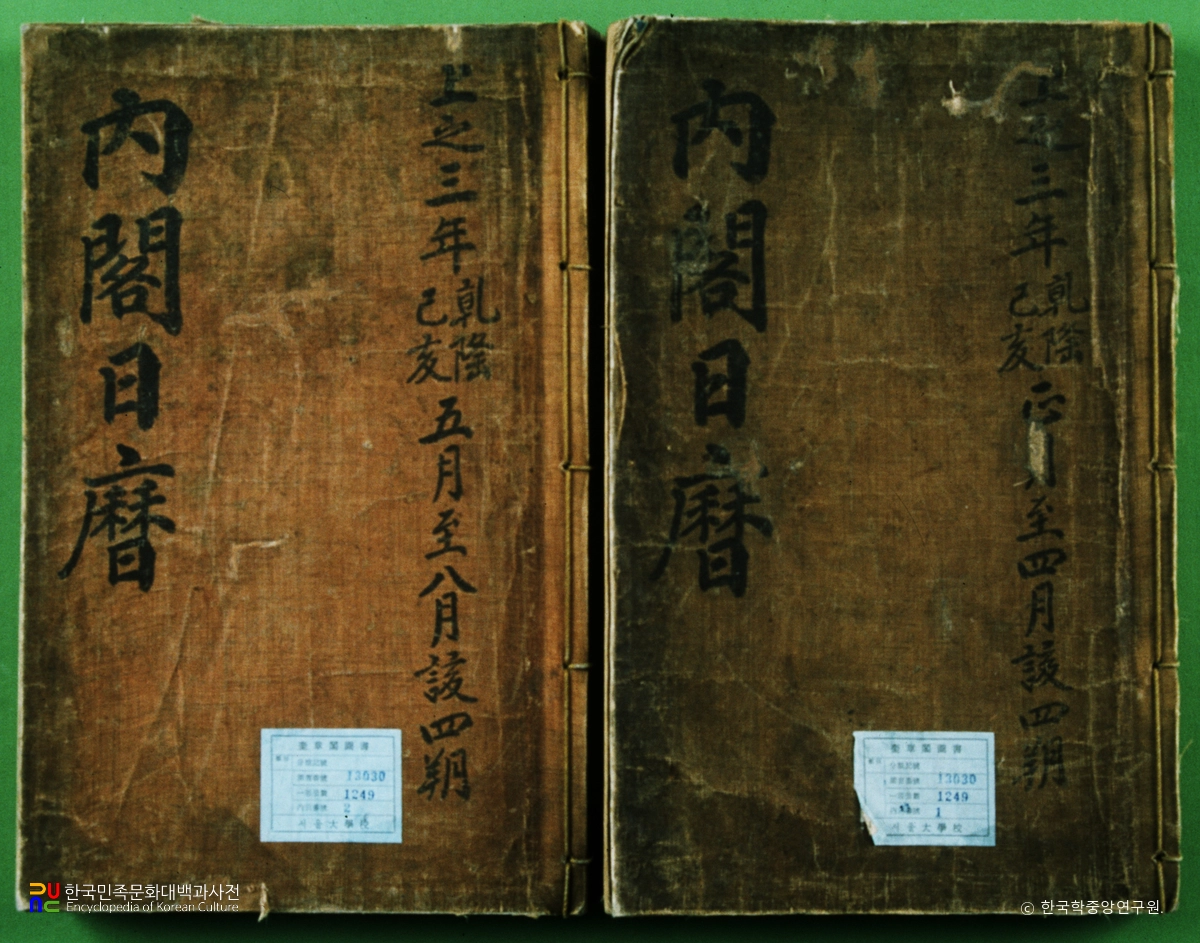 內閣日曆
上之三年
乾隆
己亥
五月至八月
四朔
奎章閣圖書
13030
1249
2
서울大學校
內閣日曆
上之三年
乾隆
己亥
正月至四月
四朔
奎章閣圖書
13030
1249
1
서울大學校
한국민족문화대백과사전
Encyclopedia of Korean Culture
ⓒ 한국학중앙연구원.